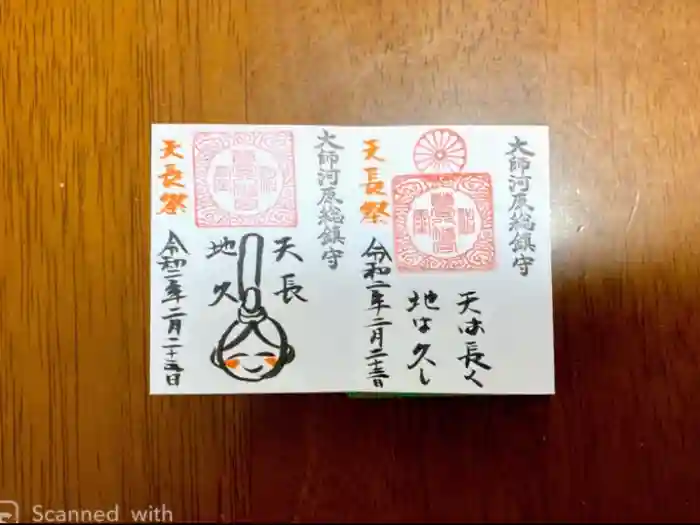 大師河原総鎮守
天は長く
地は久し
天長祭
令和二年二月二十三日
大師河原総鎮守
天長
地久
天長祭
令和二年二月二十三日
Scanned with